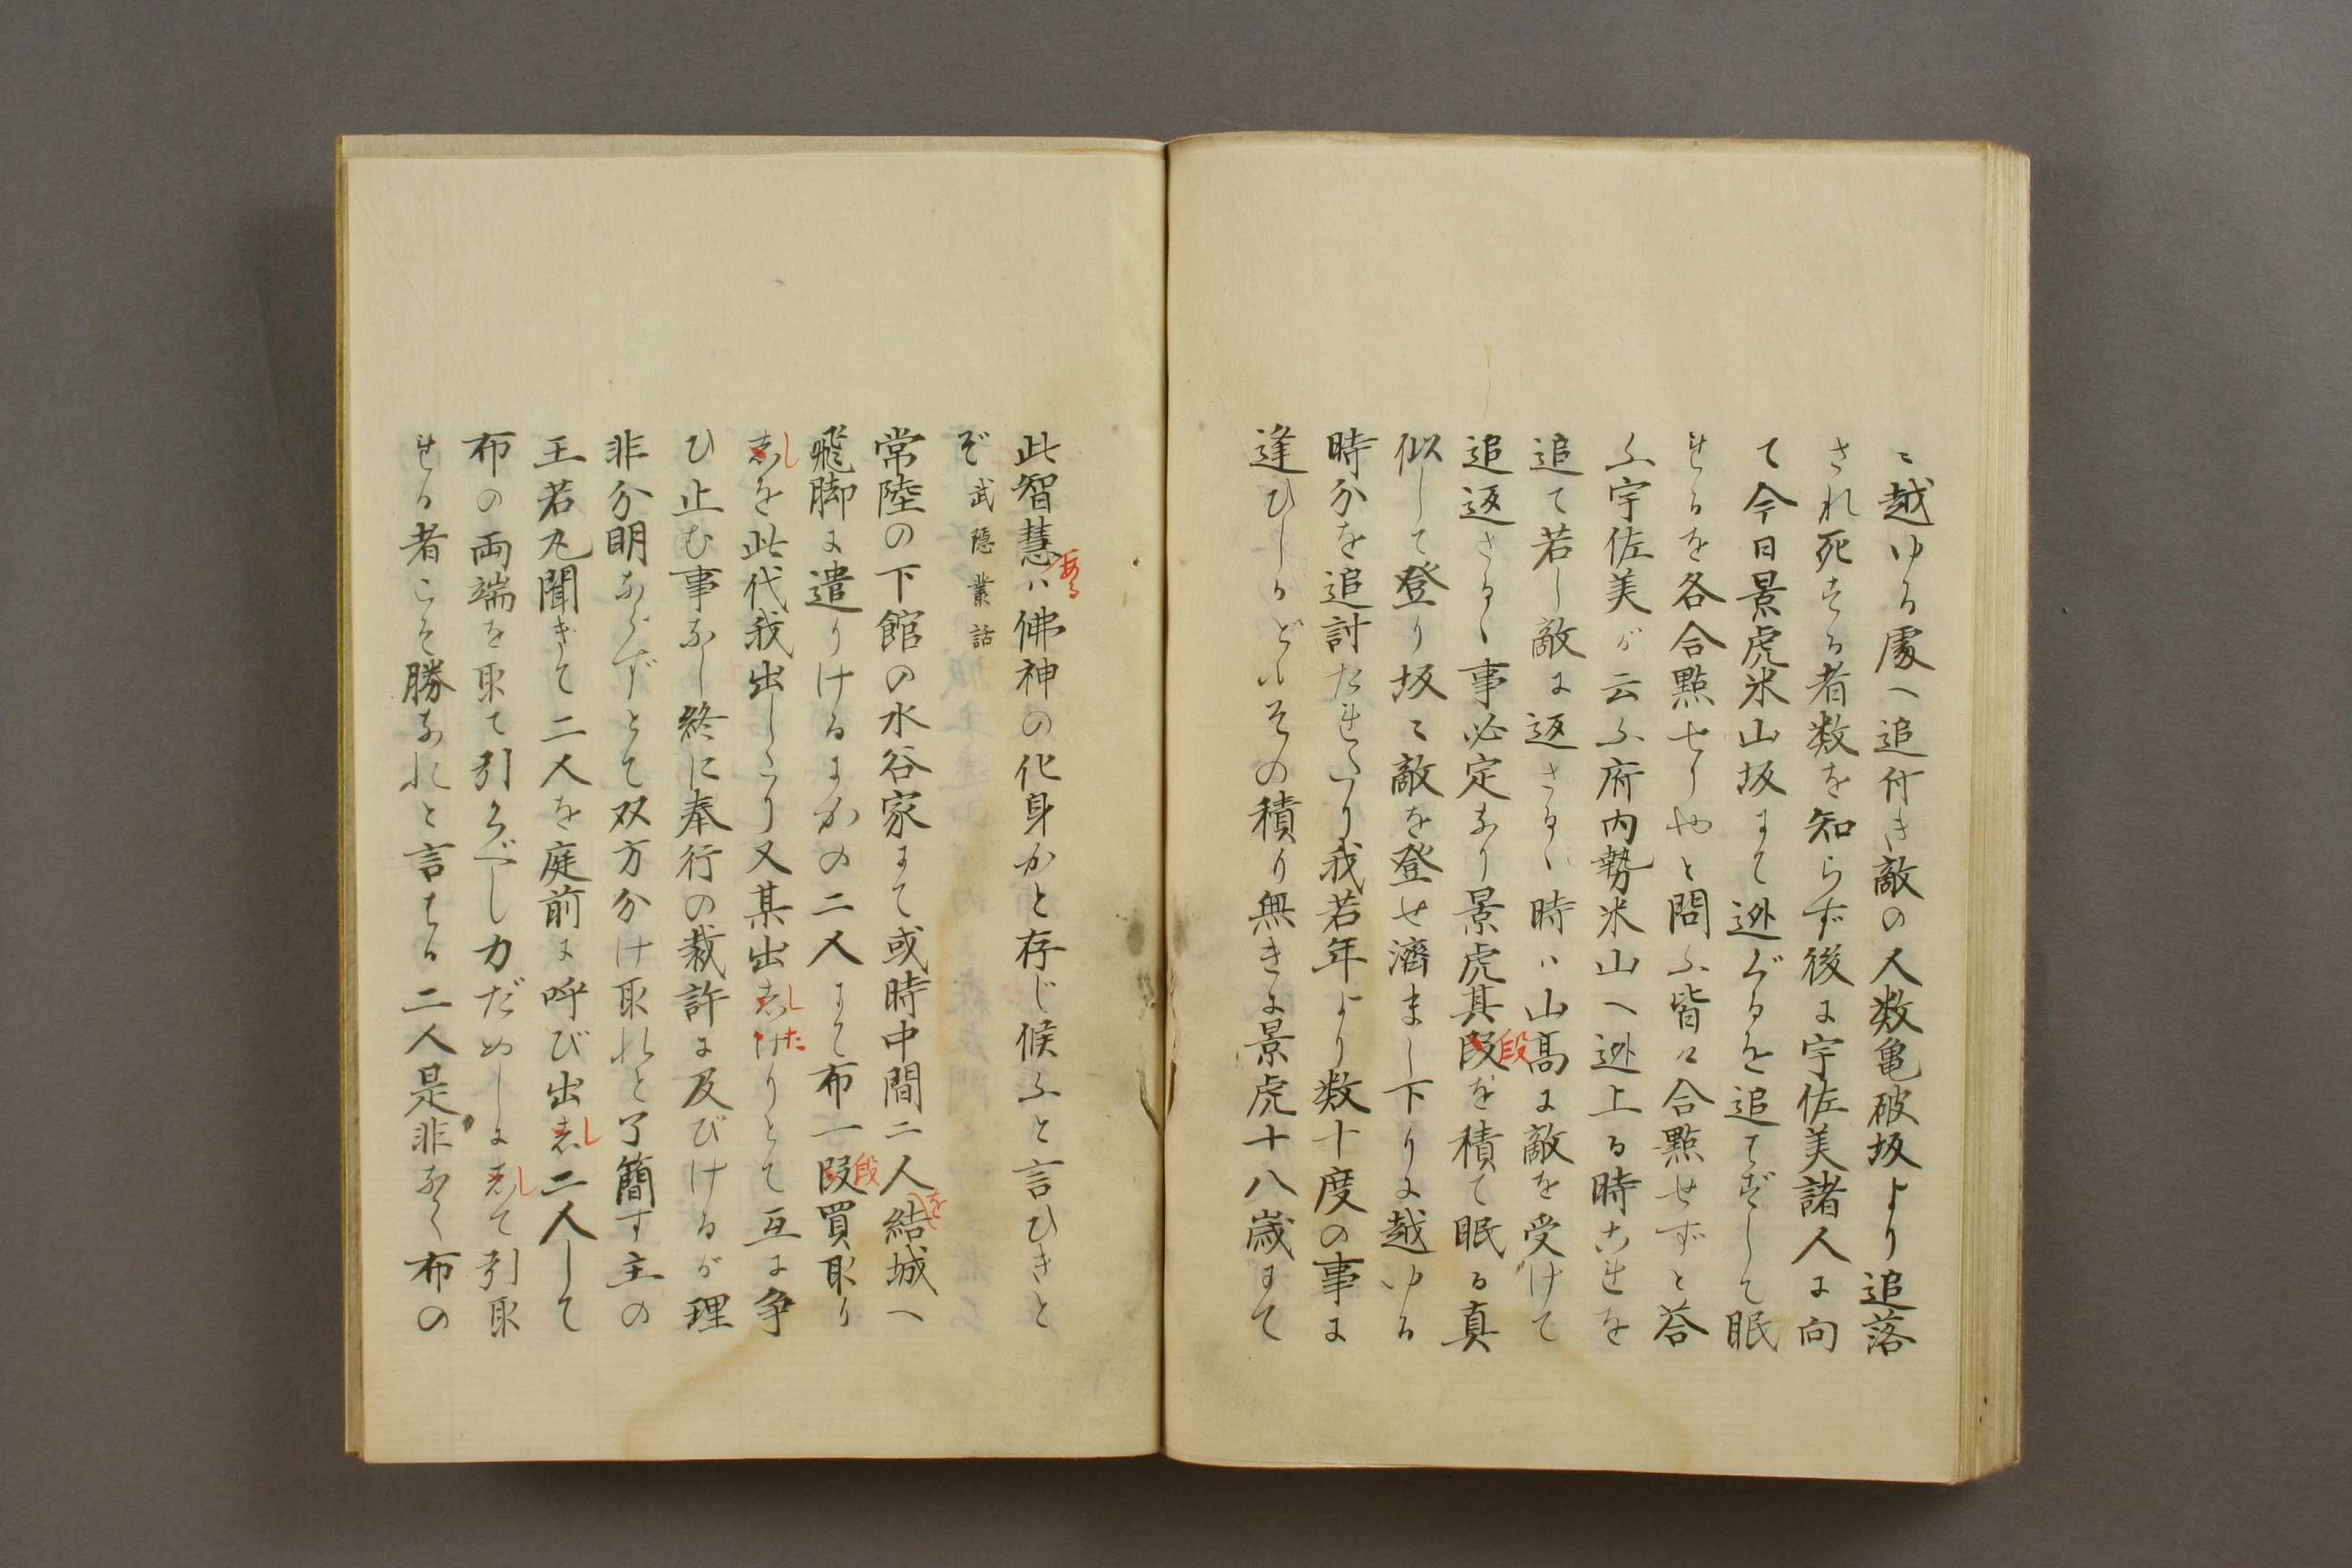 ニ越ゆる處へ追付き敵の人数亀破坂より追落
され死する者数を知らず後に宇佐美諸人に向
て今日景虎米山坂にて迯ぐるを追てずして眠
せるを各合點せりやと問ふ皆々合點せずと荅
ふ宇佐美が云ふ府内勢米山へ迯上る時これを
追て若し敵に返さるゝ時ハ山髙に敵を受けて
追返さるゝ事必定なり景虎其段を積て眠る真
似して登り坂ニ敵を登せ濟まし下りに越ゆる
時分を追討たれたり我若年より数十度の事に
逢ひしかどもその積り無きに景虎十八歳にて
此智慧あるハ佛神の化身かと存じ候ふと言ひきと
ぞ 武隠叢話
常陸の下館の水谷家にて或時中間二人を結城へ
飛脚に遣りけるにかの二人にて布一段買取り
しを此代我出したり又某出したりとて互に争
ひ止む事なし終に奉行の裁許に及びけるが理
非分明ならずとて双方分け取れと了簡す主の
王若丸聞きて二人を庭前に呼び出し二人して
布の両端を取て引くべし力だめしにして引取
せる者こそ勝なれと言はる二人是非なく布の